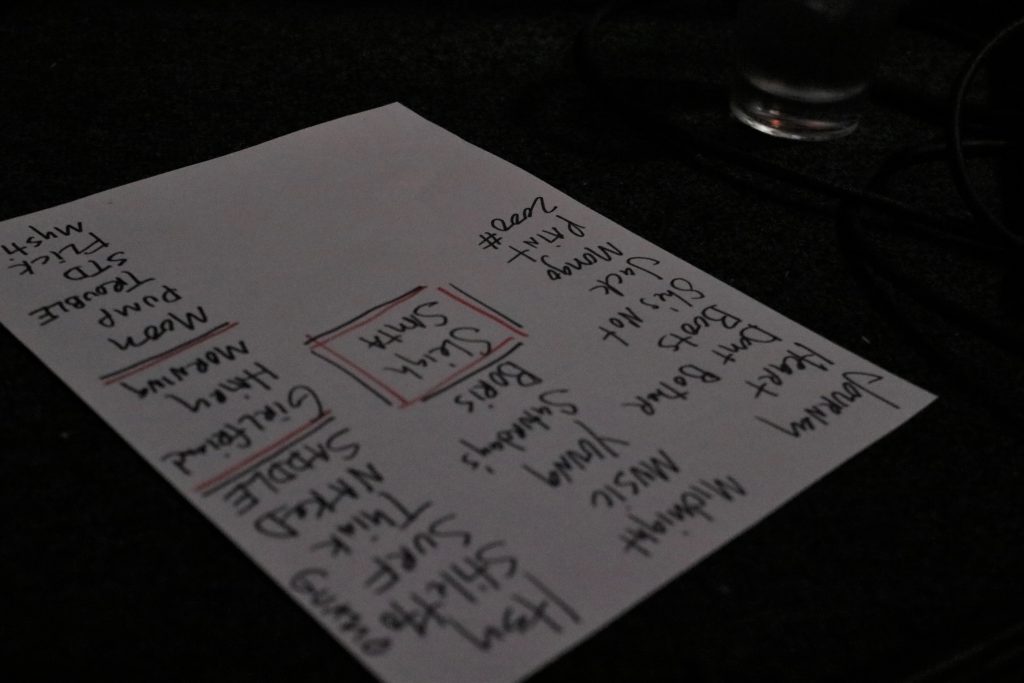 Journey
Heart
Dont Bother
Boots
She's Not
Jack
Mango
PAINT
2000#
Midnight
MUSIC
Young
Saturday's
BORIS
Sleigh
SANTA
Stiletto
SURF
Think
NAKED
SADDLE
Girlfriend
HAIRY
MORNING
MOON
PUMP
TROUBLE
STD
FLICK
Mysti